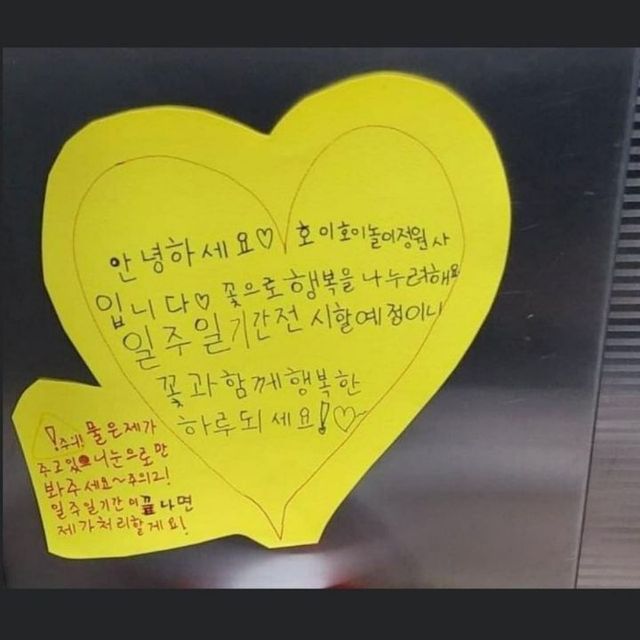 안녕하세요♡ 호이호이놀이정원사
입니다♡ 꽃으로행복을나누려해요
일주일기간전시할예정이니
꽃과함께행복한
하루되세요!♡~
!주위! 물은제가
주고있으니눈으로만
봐주세요~주의2!
일주일기간이끞나면
제가처리할게요!